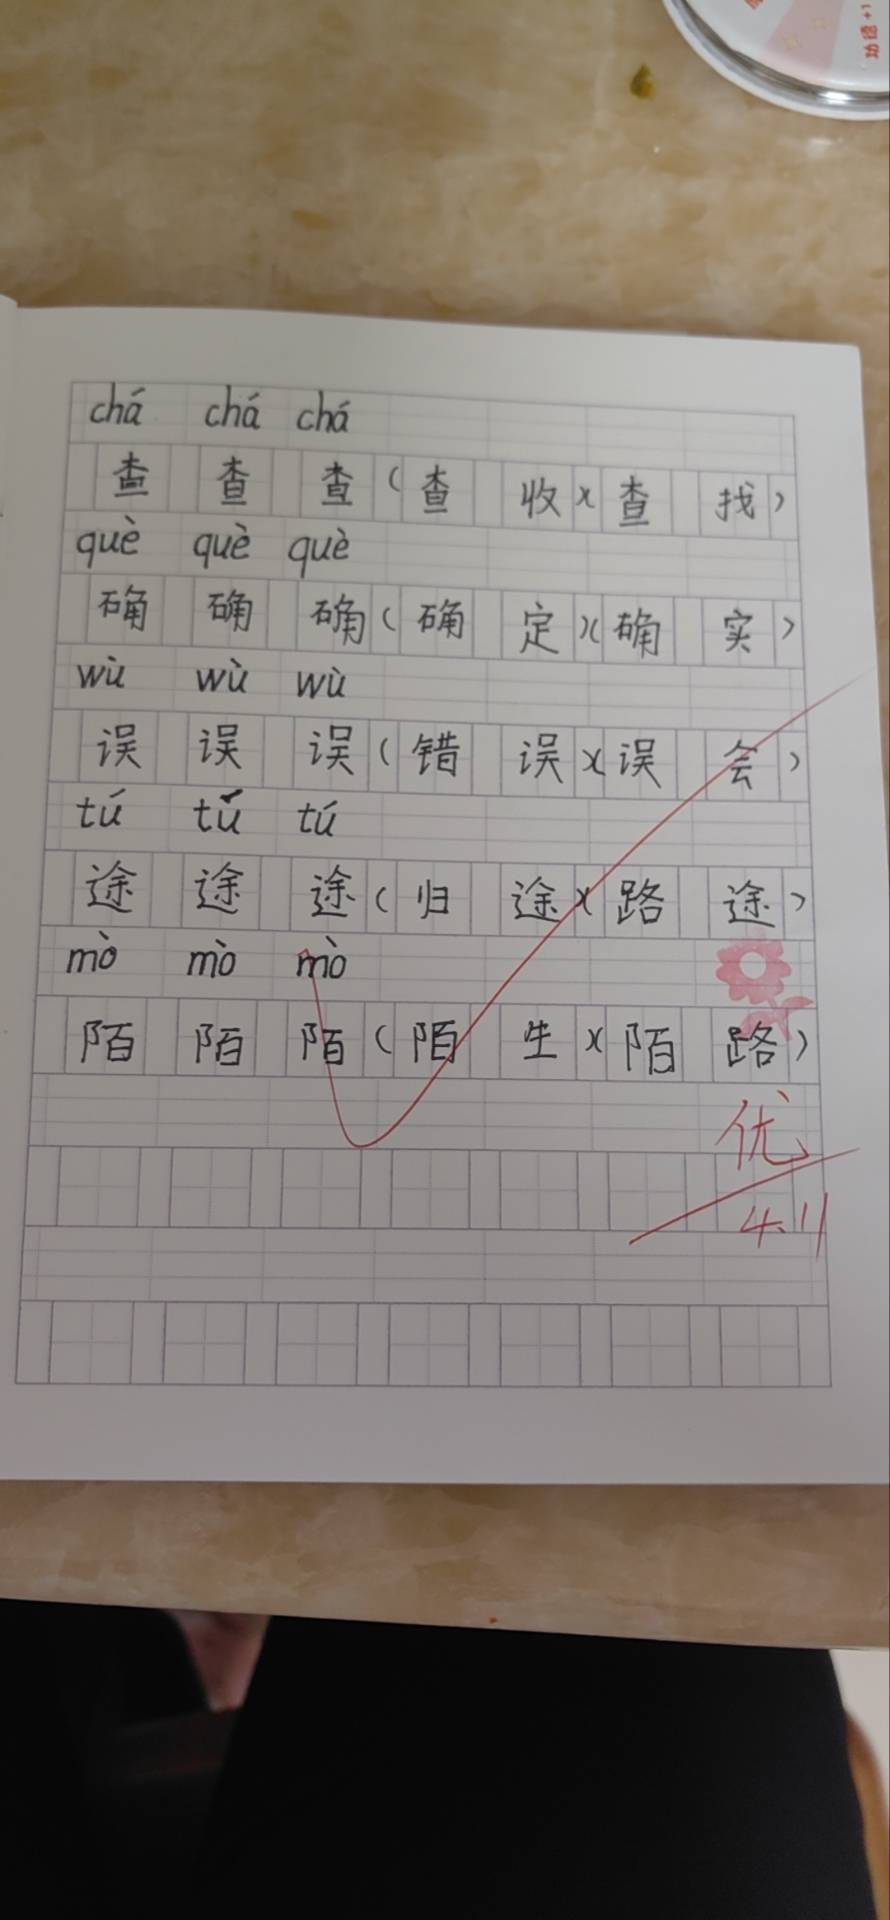 功德+1
chá chá chá
查 查 查 ( 查 收 )( 查 找 )
què què què
确 确 确 ( 确 定 )( 确 实 )
wù wù wù
误 误 误 ( 错 误 )( 误 会 )
tú tú tú
途 途 途 ( 归 途 )( 路 途 )
mò mò mò
陌 陌 陌 ( 陌 生 )( 陌 路 )
优
4.11